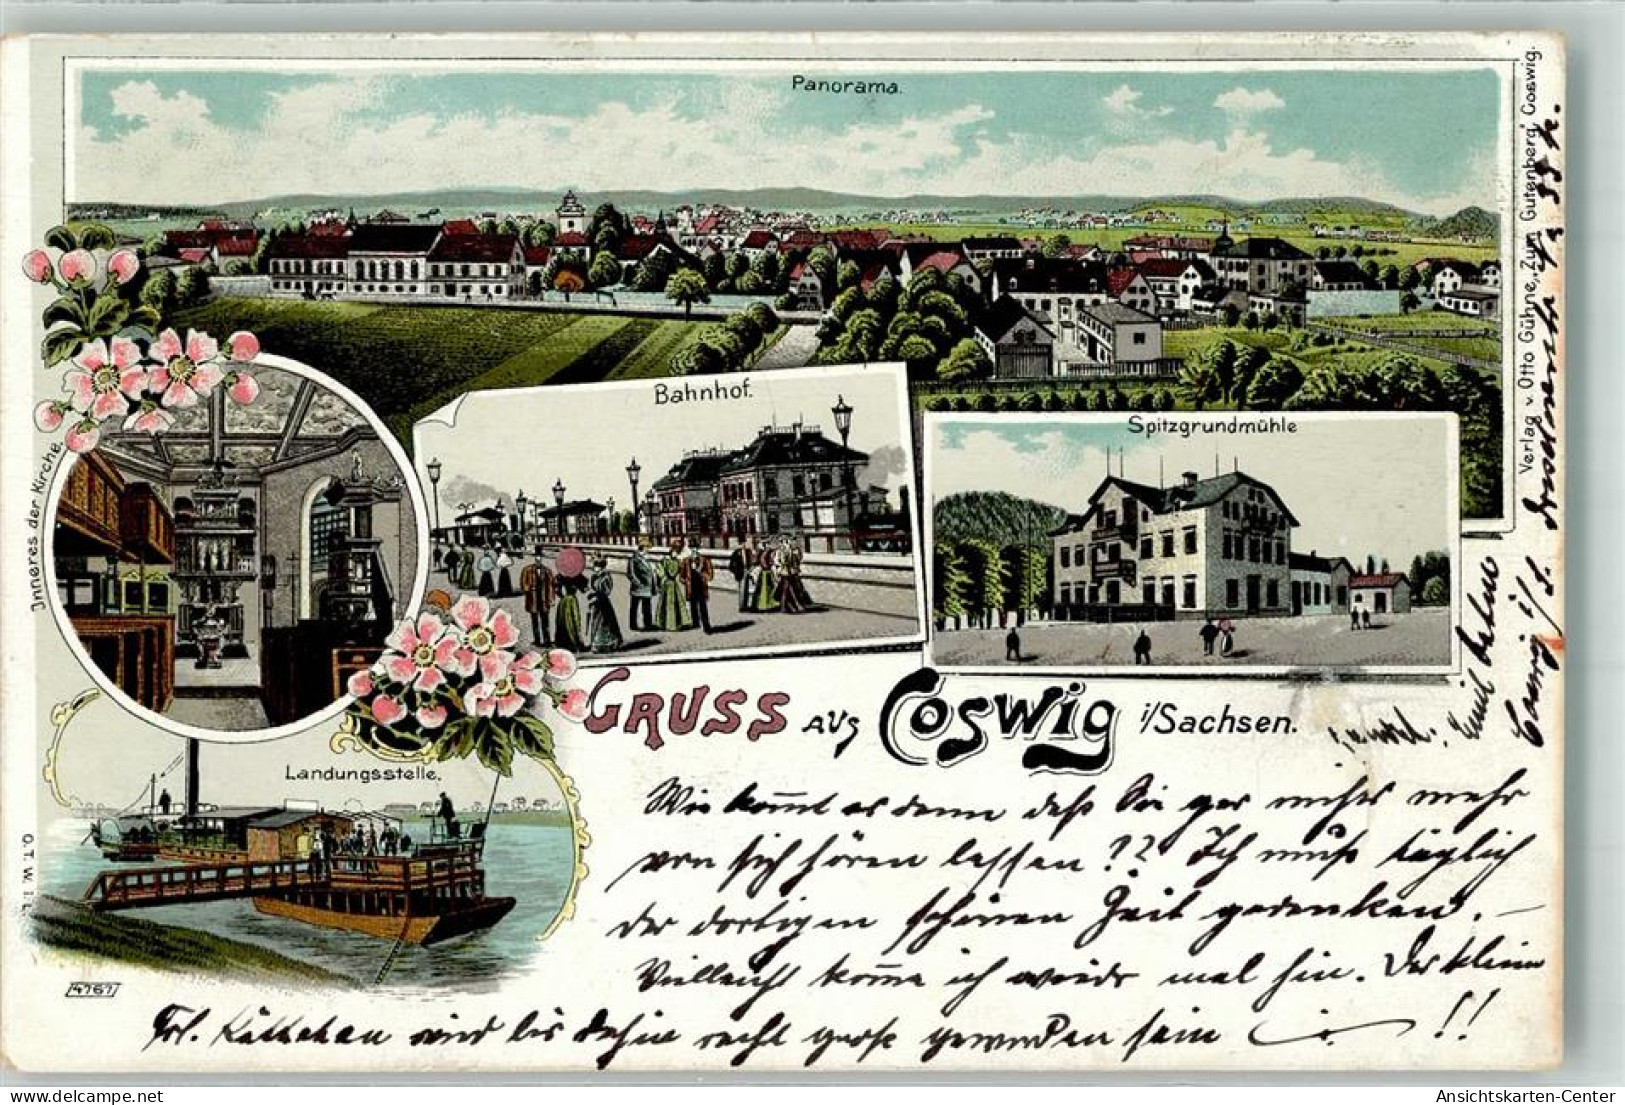 Panorama.
Bahnhof.
Spitzgrundmühle
Inneres der Kirche.
Landungsstelle.
GRUSS AUS Coswig i/Sachsen.
Verlag v. Otto Gühne, "Zum Gutenberg", Coswig.
O.T.W. i. L.
4761
Wie kommt es denn daß Sie gar nichts mehr
von sich hören lassen?? Ich muß täglich
der dortigen schönen Zeit gedenken. –
Vielleicht komme ich wieder mal hin. Das kleine
Frl. Käthchen wird bis dahin recht groß geworden sein !!
Emil
Coswig i/S.
AnsichtsKarten-Center